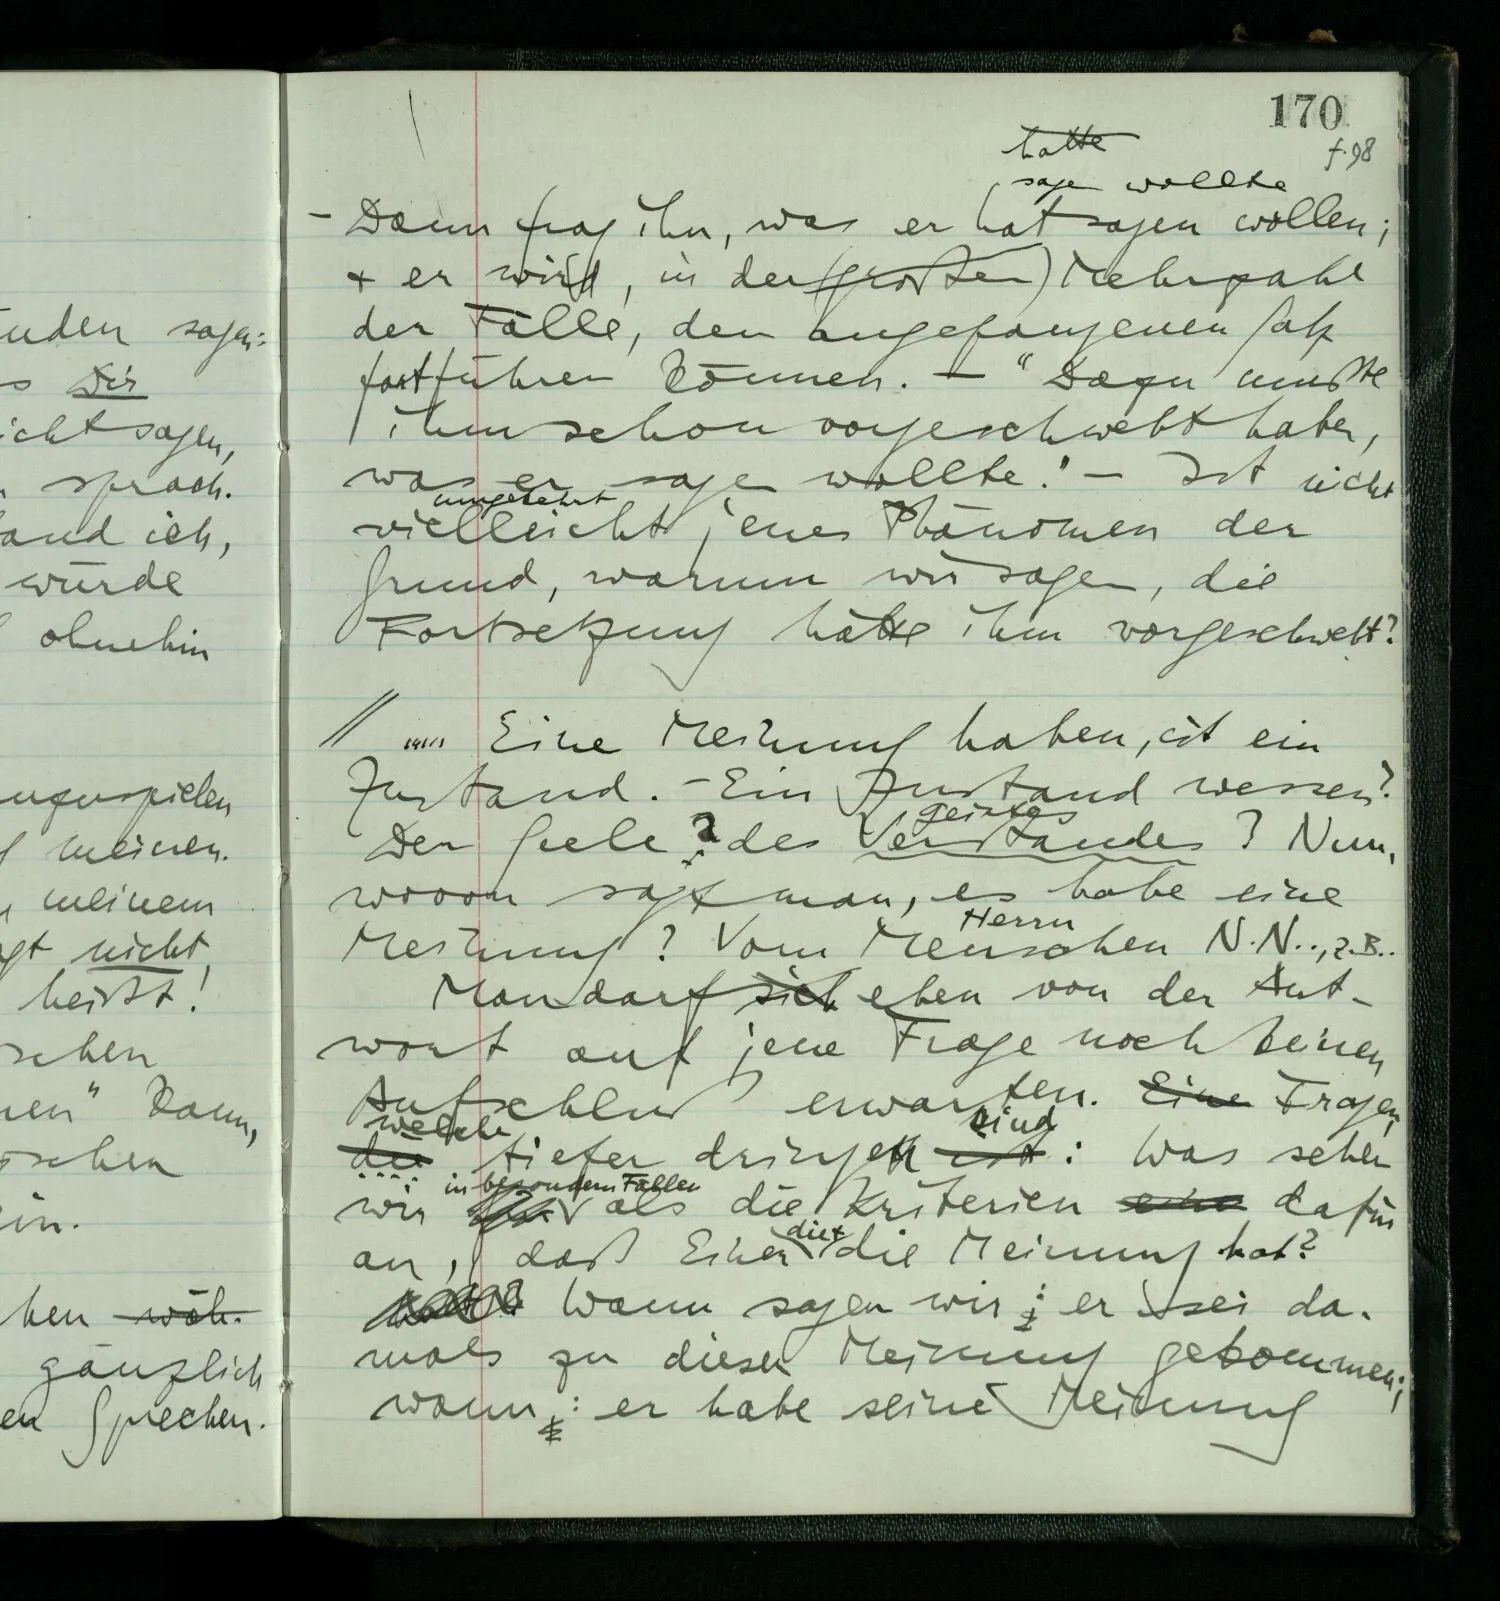 170
f. 98
hatte
sagen wollte
– Dann frag ihn, was er hat sagen wollen;
+ er wird, in der (großen) Mehrzahl
der Fälle, den angefangenen Satz
fortführen können. – "Dazu mußte
ihm schon vorgeschwebt haben,
was er sagen wollte." – Ist nicht
umgekehrt
vielleicht jenes Phänomen der
Grund, warum wir sagen, die
Fortsetzung hätte ihm vorgeschwebt?
// Eine Meinung haben, ist ein
Zustand. – Ein Zustand wessen?
Geistes
Der Seele? des Verstandes? Nun,
wovon sagt man, es habe eine
Herrn
Meinung? Vom Menschen N.N.., z.B..
Man darf sich eben von der Ant-
wort auf jene Frage noch keinen
Aufschluß erwarten. Eine Fragen,
welche sind
die tiefer dringen ist: Was sehen
in besondern Fällen
wir als die Kriterien dafür
die
an, daß Einer die Meinung hat?
Wann sagen wir: er sei da-
mals zu dieser Meinung gekommen;
wann: er habe seine Meinung
nden sagen:
s Dir
icht sagen,
sprach.
and ich,
würde
ohnehin
nzuspielen
meinen.
meinem
gt nicht,
heißt!
schen
nen" kann,
schen
in.
hen wäh-
gänzlich
en Sprechen.